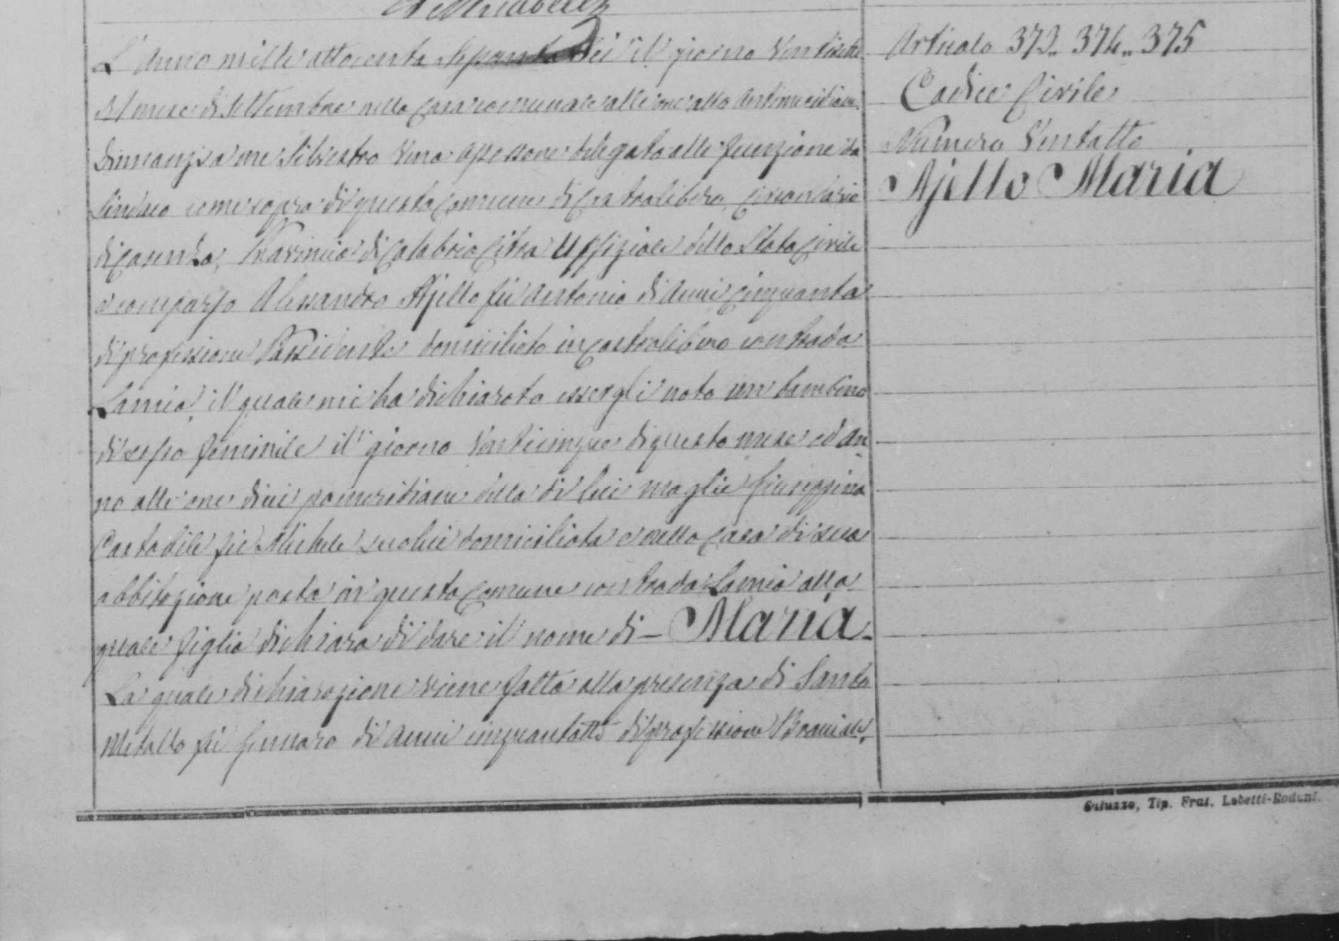 L'Anno mille ottocento Settanta Sei il giorno Ventisette
del mese di Settembre nella Casa comunale alle ore otto Antimeridiane
Dinnanzi a me Silvestro Assessore delegato alle funzione da
Sindaco come sopra di questo Comune di Castrolibero, Circondario
di Cosenza, Provincia di Calabria Citra Uffiziale dello Stato Civile
è comparso Alessandro Ajello fu Antonio di Anni Cinquanta
di professione domiciliato in Castrolibero contrada
Lamia, il quale mi ha dichiarato essergli nato un bambino
di sesso feminile il giorno Venticinque di questo mese ed An
no alle ore dieci pomeridiane dalla di lui moglie Giuseppina
fu Michele seco lui domiciliata e nella Casa di sua
abbitazione posta in questo Comune contrada Lamia alla
quale figlia dichiara di dare il nome di – Maria
La quale dichiarazione viene fatta alla presenza di Santo
fu Gennaro di Anni cinquantotto di professione Bracciale
Articolo 373.. 374.. 375
Codice Civile
Numero Ventotto
Ajello Maria
Saluzzo, Tip. Frat. Lobetti-Bodoni.